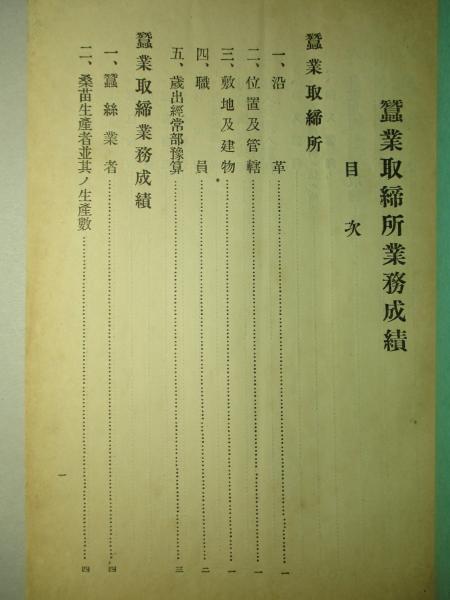 蠶業取締所業務成績
目次
蠶業取締所
一、沿革……一
二、位置及管轄……一
三、敷地及建物……一
四、職員……二
五、歲出經常部豫算……三
蠶業取締業務成績
一、蠶絲業者……四
二、桑苗生產者並其ノ生產數……四
一